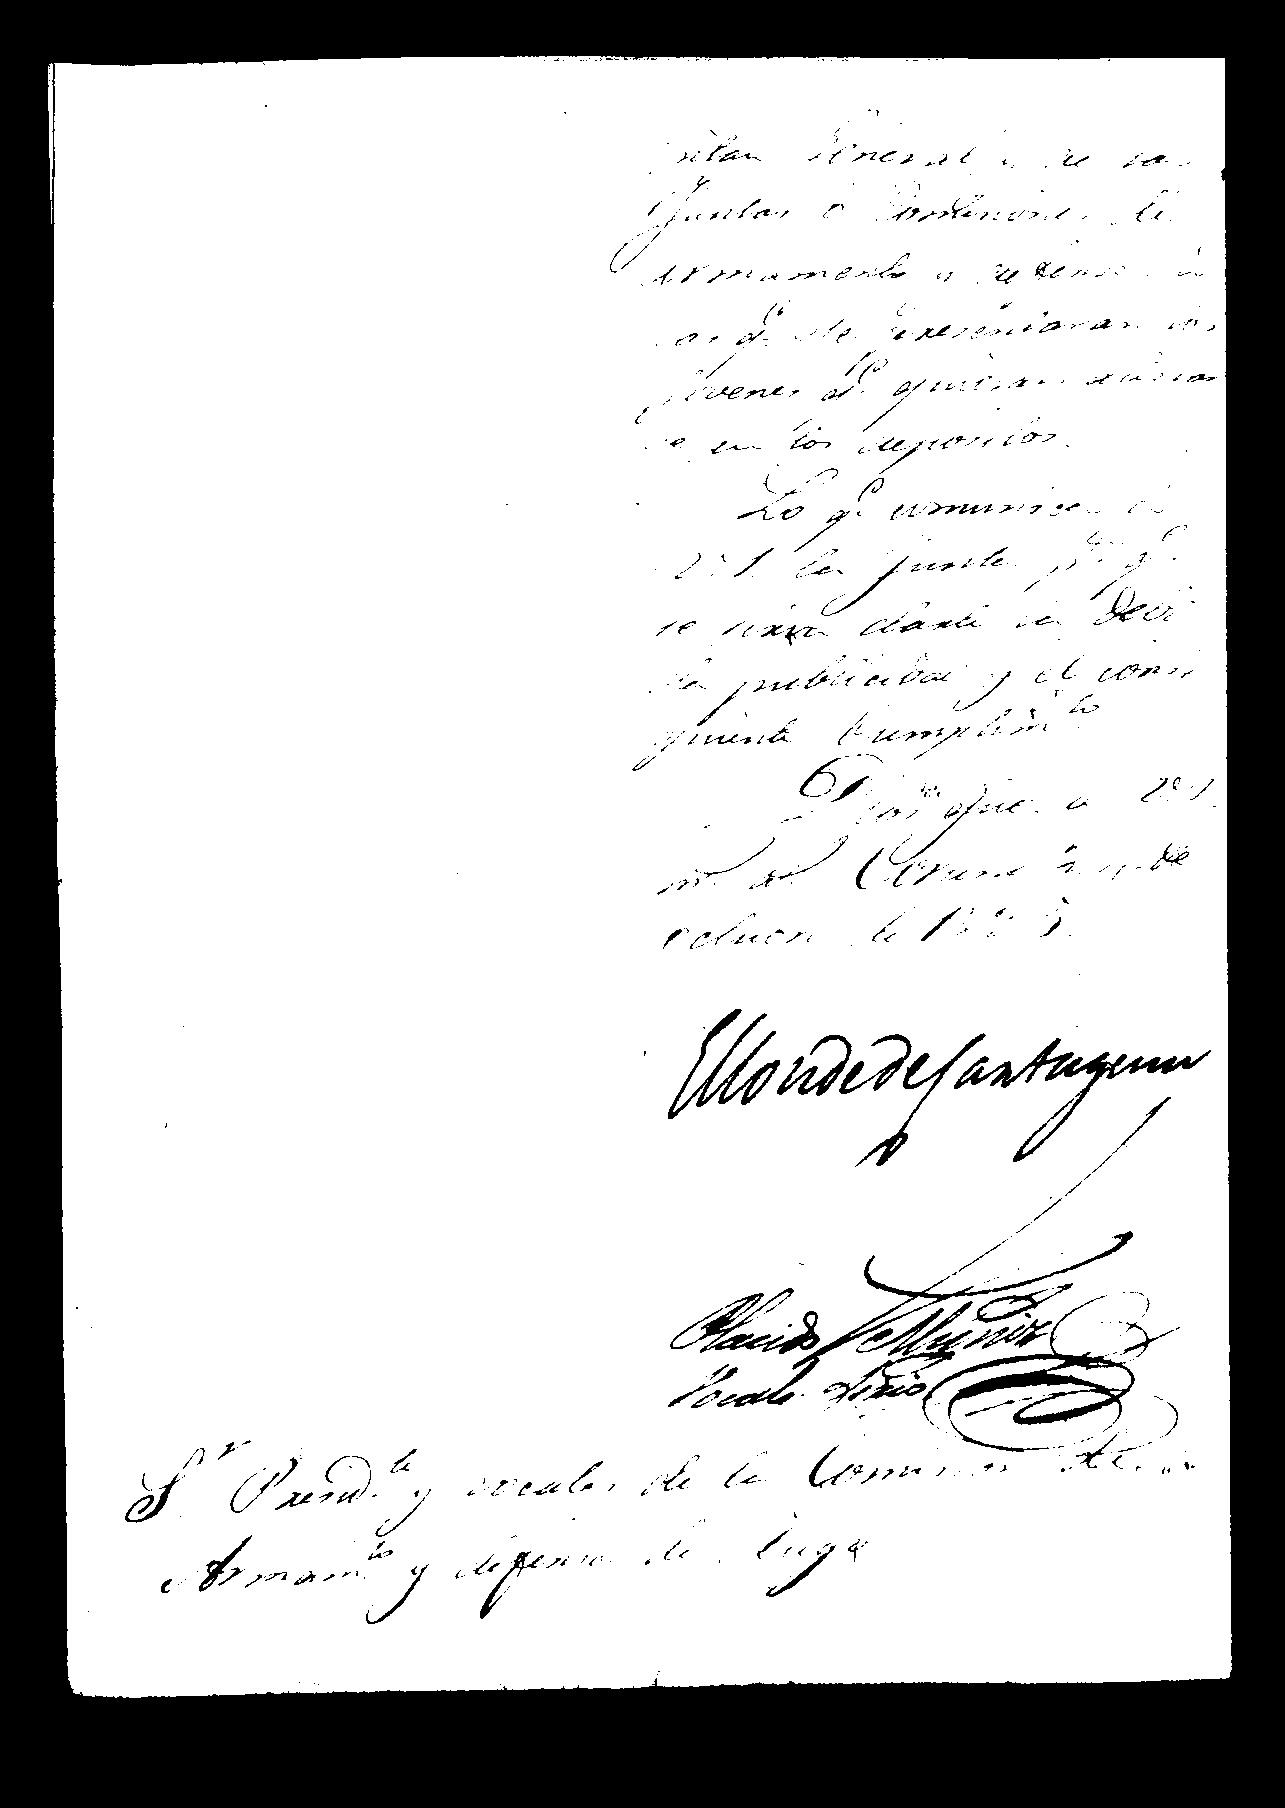 pitan General y de las
Juntas o Comisiones de
armamento y defensa a
las qe. se presentaran los
jovenes qe. quieran alistar
se en los depositos.
Lo qe. comunica a
V.S. la Junta pa. qe.
se sirva darle la debi
da publicidad y el consi
guiente cumplimto.
Dios gue. a V.S.
ms. as. Coruña de
de 1823.
El Conde de Cartagena
Placido Muñiz
Vocal Srio
Sr. Presidte. y vocales de la Comision de
Armamto. y defensa de Lugo